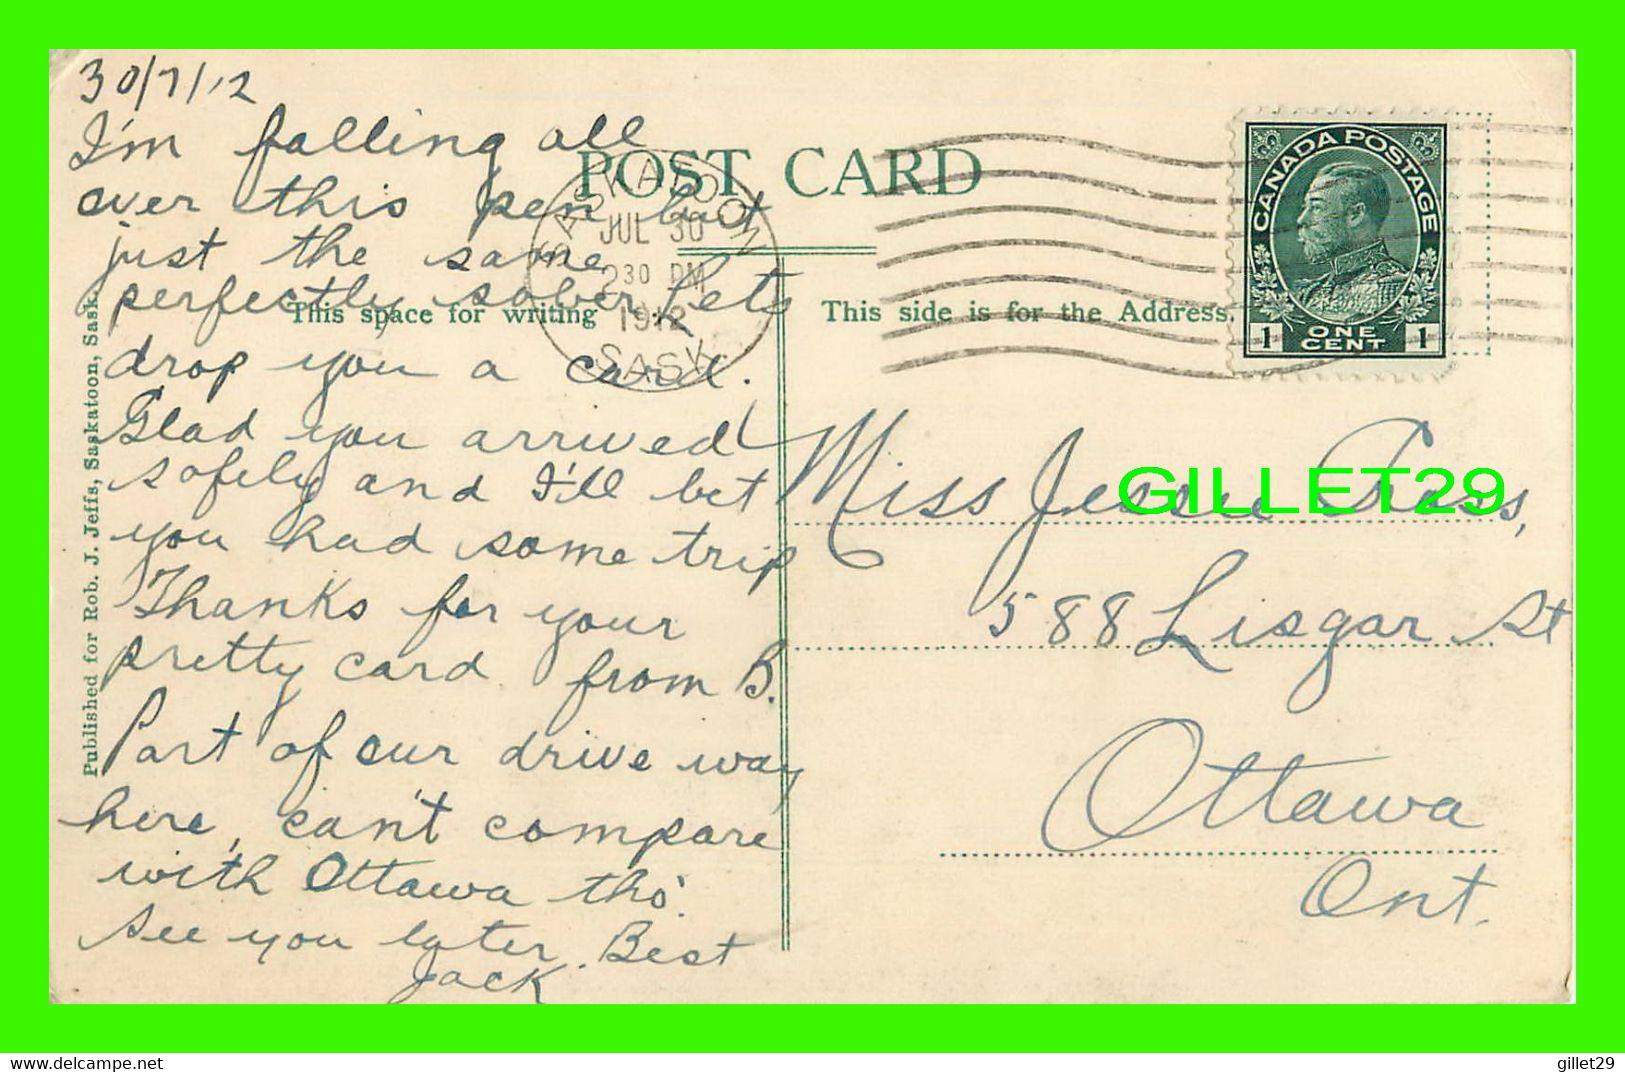 30/7/12
I'm falling all
over this pen but
just the same
perfectly sober. Lets
drop you a card.
Glad you arrived
safely and I'll bet
you had some trip
Thanks for your
pretty card from B.
Part of our drive way
here, can't compare
with Ottawa tho'
See you later. Best
Jack
POST CARD
This space for writing
This side is for the Address.
SASKATOON
JUL 30
2 30 PM
1912
SASK
CANADA POSTAGE
1 ONE CENT 1
Miss Jessie
588 Lisgar St
Ottawa
Ont.
Published for Rob. J. Jeffs, Saskatoon, Sask.
GILLET29
www.delcampe.net
gillet29